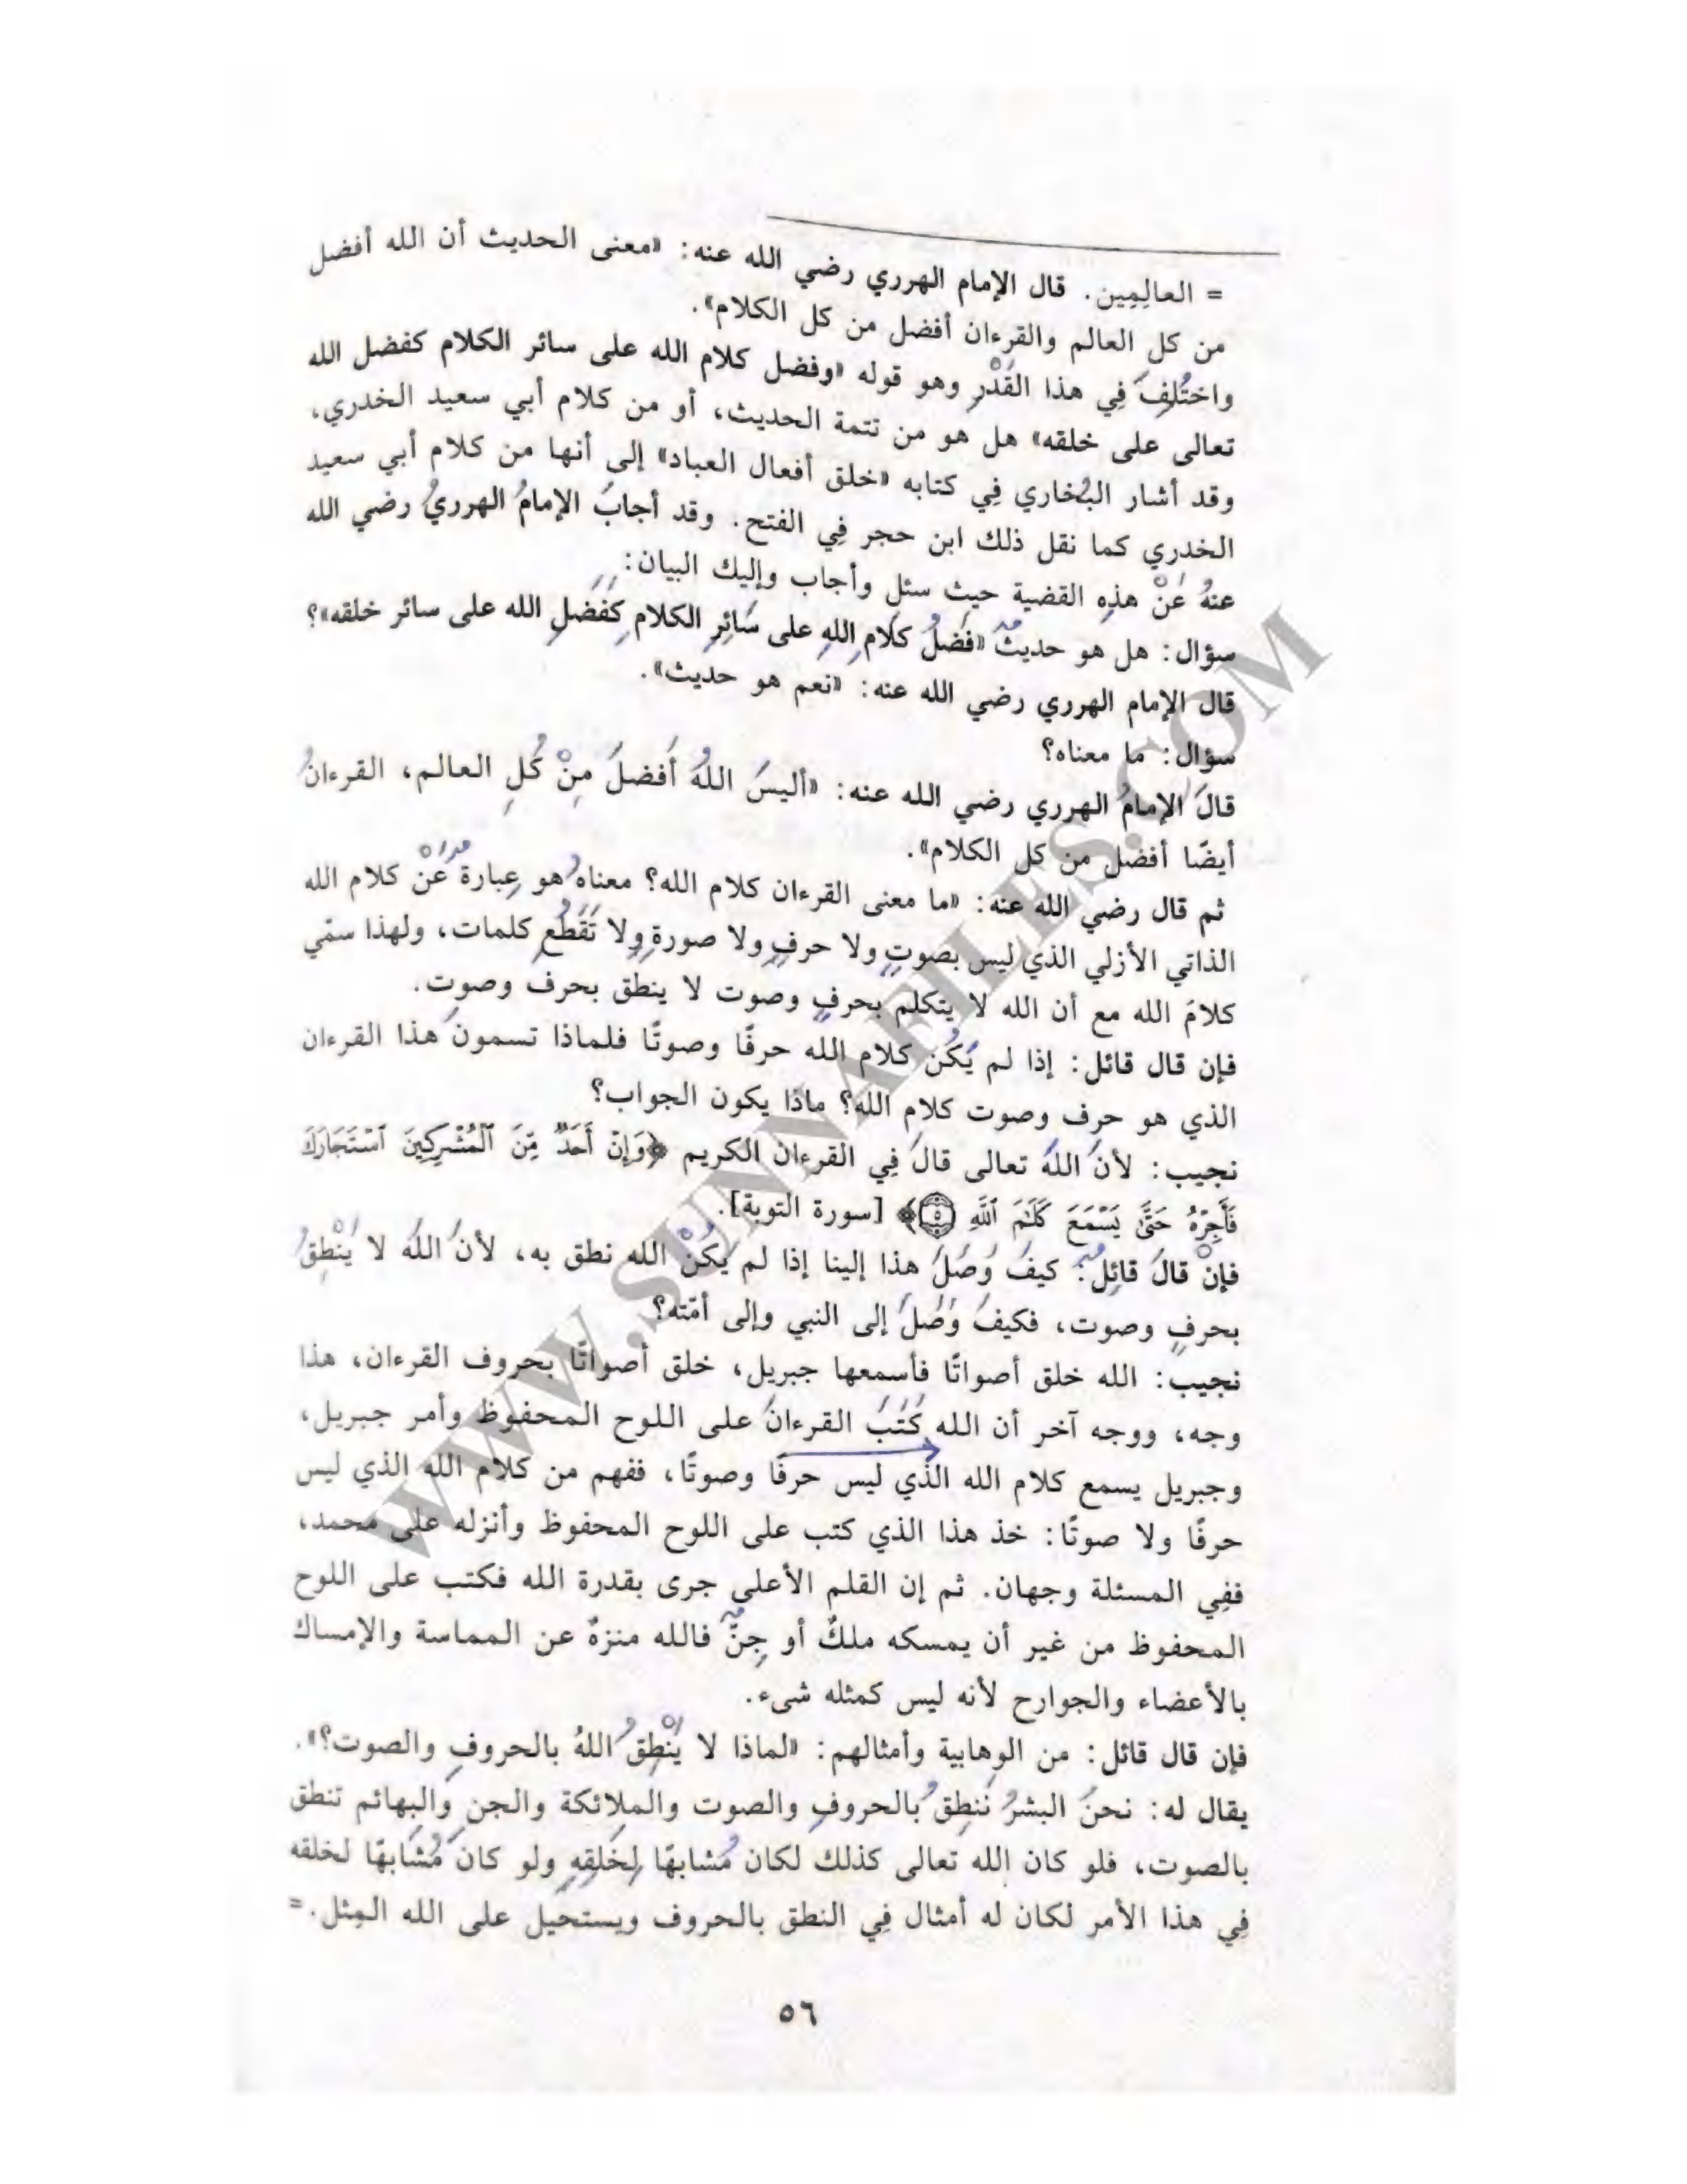 = العالِمِين. قال الإمام الهرري رضي الله عنه: «معنى الحديث أن الله أفضل
من كل العالم والقرءان أفضل من كل الكلام».
واختُلِفَ فِي هذا القَدْرِ وهو قوله «وفضل كلام الله على سائر الكلام كفضل الله
تعالى على خلقه» هل هو من تتمة الحديث، أو من كلام أبي سعيد الخدري،
وقد أشار البُخاري فِي كتابه «خلق أفعال العباد» إلى أنها من كلام أبي سعيد
الخدري كما نقل ذلك ابن حجر فِي الفتح. وقد أجابَ الإمامُ الهرريُ رضي الله
عنهُ عَنْ هذِهِ القضية حيث سئل وأجاب وإليك البيان:
سؤال: هل هو حديثٌ «فَضلُ كلامِ اللهِ على سَائِرِ الكلامِ كَفَضلِ الله على سائر خلقه»؟
قال الإمام الهرري رضي الله عنه: «نعم هو حديث».
سؤال: ما معناه؟
قالَ الإمامُ الهرري رضي الله عنه: «أليسَ اللهُ أَفضلَ مِنْ كُلِ العالم، القرءانُ
أيضًا أفضل من كل الكلام».
ثم قال رضي الله عنه: «ما معنى القرءان كلام الله؟ معناهُ هو عِبارةٌ عَنْ كلام الله
الذاتي الأزلي الذي ليس بصوتٍ ولا حرفٍ ولا صورةٍ ولا تَقَطُعِ كلمات، ولهذا سمّي
كلامَ الله مع أن الله لا يتكلم بحرفٍ وصوت لا ينطق بحرف وصوت.
فإن قال قائل: إذا لم يَكُن كلام الله حرفًا وصوتًا فلماذا تسمونَ هذا القرءان
الذي هو حرف وصوت كلام الله؟ ماذا يكون الجواب؟
نجيب: لأنَ اللهَ تعالى قالَ فِي القرءان الكريم ﴿وَإِنْ أَحَدٌ مِّنَ ٱلْمُشْرِكِينَ ٱسْتَجَارَكَ
فَأَجِرْهُ حَتَّىٰ يَسْمَعَ كَلَٰمَ ٱللَّهِ ٥﴾ [سورة التوبة].
فإنْ قالَ قائِلٌ: كيفَ وَصَلَ هذا إلينا إذا لم يَكُنْ الله نطق به، لأنَ اللهَ لا يَنْطِقُ
بحرفٍ وصوت، فكيفَ وَصَلَ إلى النبي وإلى أمّته؟
نجيب: الله خلق أصواتًا فأسمعها جبريل، خلق أصواتًا بحروف القرءان، هذا
وجه، ووجه آخر أن الله كَتَبَ القرءانَ على اللوح المحفوظ وأمر جبريل،
وجبريل يسمع كلام الله الذي ليس حرفًا وصوتًا، ففهم من كلام الله الذي ليس
حرفًا ولا صوتًا: خذ هذا الذي كتب على اللوح المحفوظ وأنزله على محمد،
ففِي المسئلة وجهان. ثم إن القلم الأعلى جرى بقدرة الله فكتب على اللوح
المحفوظ من غير أن يمسكه ملكٌ أو جِنٌّ فالله منزهٌ عن المماسة والإمساك
بالأعضاء والجوارح لأنه ليس كمثله شىء.
فإن قال قائل: من الوهابية وأمثالهم: «لماذا لا يَنْطِقُ اللهُ بالحروفِ والصوت؟».
يقال له: نحنُ البشرُ نَنطِقُ بالحروفِ والصوت والملائكة والجن والبهائم تنطق
بالصوت، فلو كان الله تعالى كذلك لكان مُشابهًا لِخَلقِهِ ولو كانَ مُشَابهًا لخلقه
فِي هذا الأمر لكان له أمثال فِي النطق بالحروف ويستحيل على الله المِثل.=
٥٦
WWW.SUNNAFILES.COM